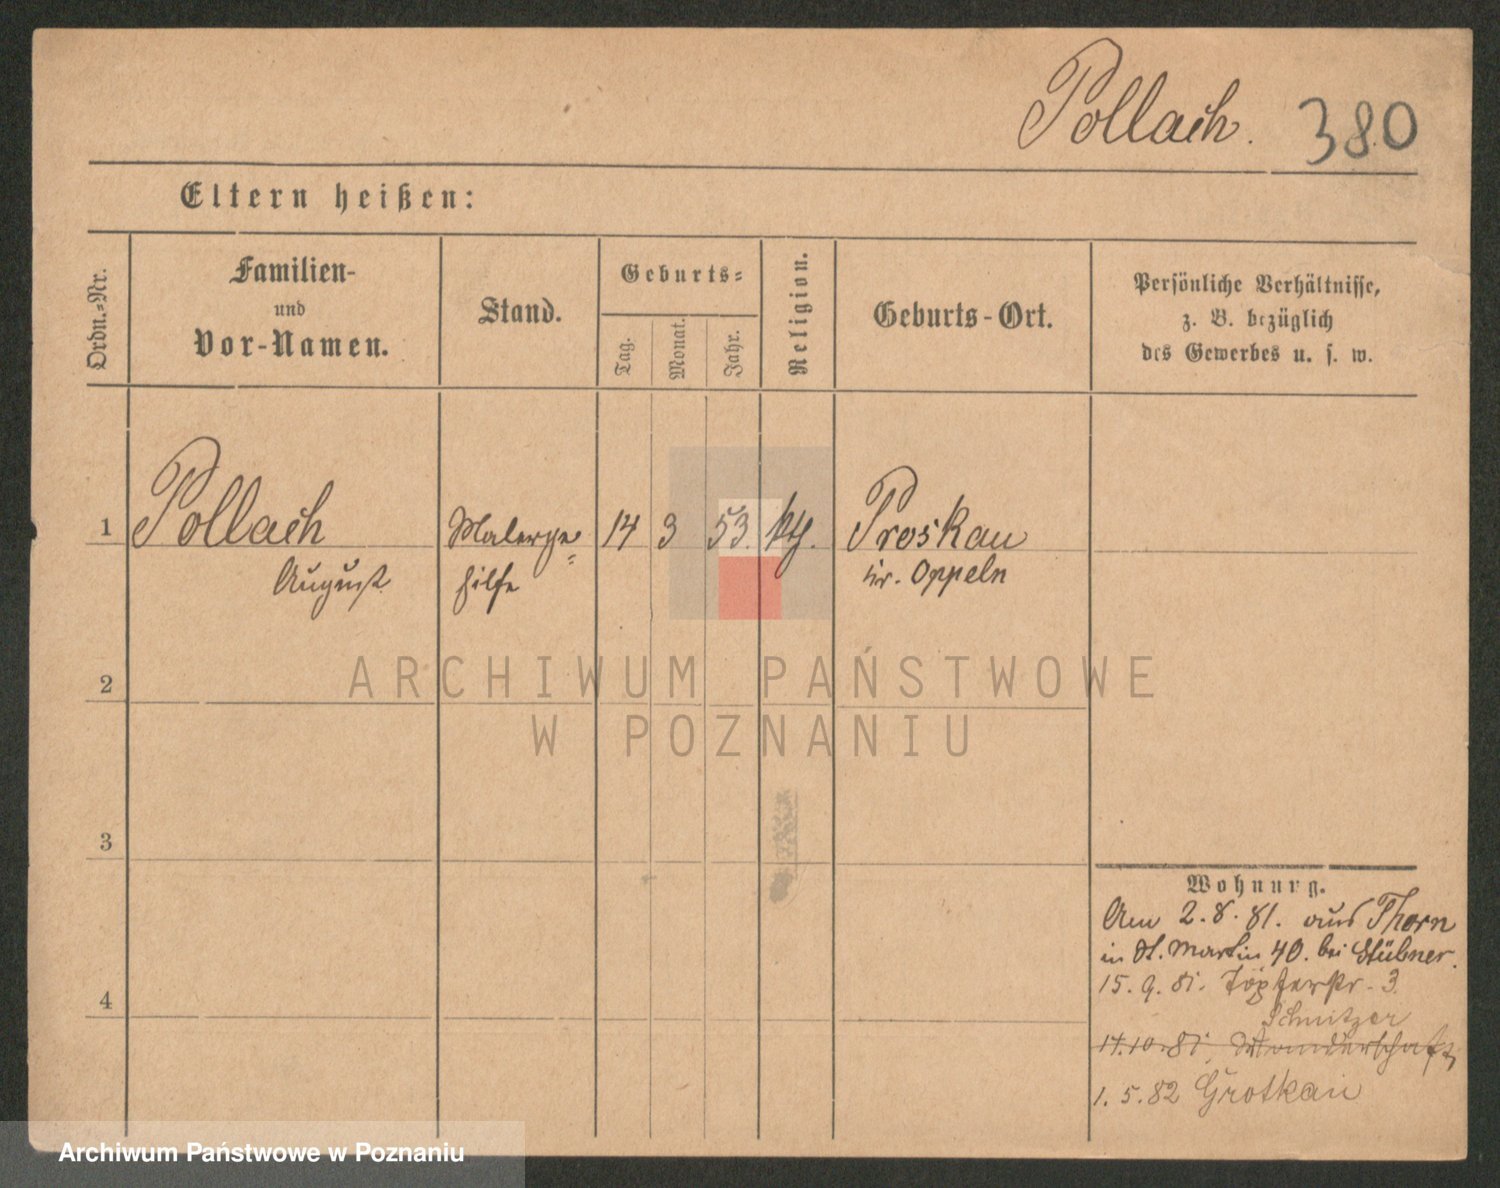 Pollach. 380
Eltern heißen:
Ordn.-Nr.
Familien-
und
Vor-Namen.
Stand.
Geburts-
Tag.
Monat.
Jahr.
Religion.
Geburts-Ort.
Persönliche Verhältnisse,
z. B. bezüglich
des Gewerbes u. s. w.
1 Pollach Malerge= 14 3 53. kth. Proskau
August hilfe Kr. Oppeln
ARCHIWUM PAŃSTWOWE
2
W POZNANIU
3
Wohnung.
Am 2.8.81. aus Thorn
in St. Martin 40. bei Stübner.
15.9.81. Töpferstr. 3
4
Schnitzer
17.10.81. Wanderschaft,
1.5.82 Grotkau
Archiwum Państwowe w Poznaniu